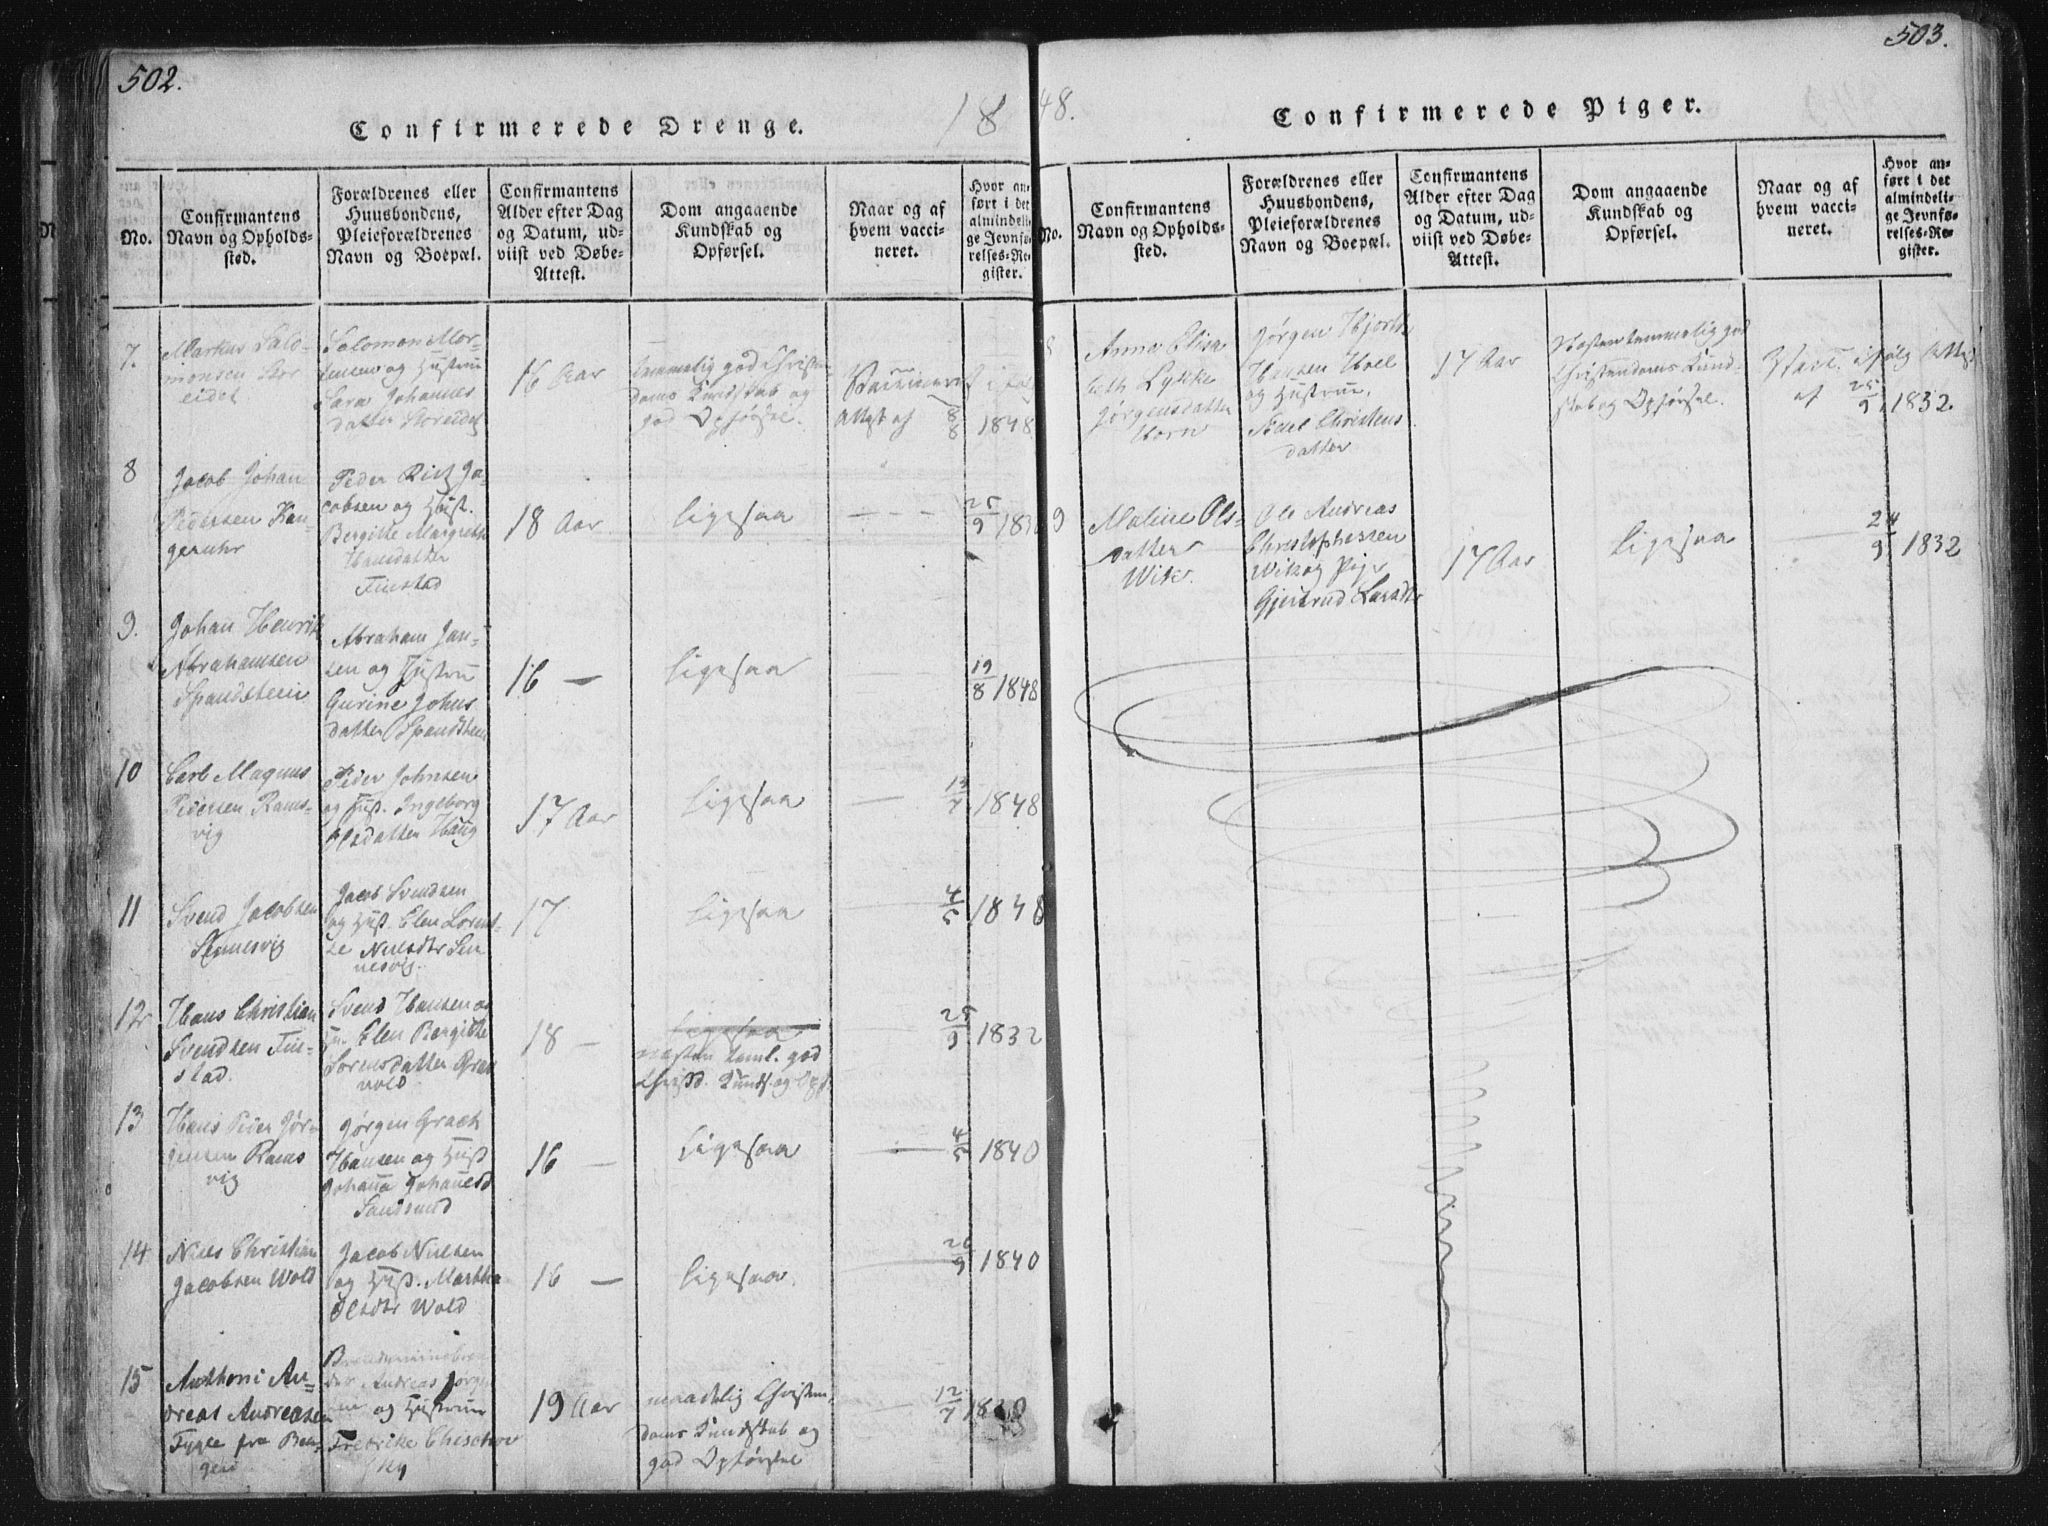 502.
Confirmerede Drenge.
18
No.
Confirmantens
Navn og Opholds-
sted.
Forældrenes eller
Huusbondens,
Pleieforældrenes
Navn og Boepæl.
Confirmantens
Alder efter Dag
og Datum, ud-
viist ved Døbe-
Attest.
Dom angaaende
Kundskab og
Opførsel.
Naar og af
hvem vacci-
neret.
Hvor an-
ført i det
almindeli-
ge Jevnfø-
relses-Re-
gister.
7.
Markus Salo-
monsen Stor
eidet
Solomon Mor-
tensen og Hustrue
Sara Johannes
datter Storeidet
16 Aar
temmelig god Christen
doms Kundskab og
god Opførsel.
Attest af 8/8 1848
8
Jacob Johan
Pedersen Kan-
geruhr
Peder Ritz Ja-
cobsen og Hust.
Bergitte Margrethe
Hansdatter
Finstad
18 Aar
ligesaa
25/9 183
9.
Johan Henrik
Abrahamsen
Spandsteen
Abraham Jan-
sen og Hustrue
Gurine Johns
datter Spandsteen
16 —
ligesaa
19/8 1848
10
Carl Magnus
Pedersen Rams-
vig
Peder Johnsen
og Hust. Ingeborg
Olsdatter Haug
17 Aar
ligesaa
— 13/7 1848
11
Svend Jacobsen
Sennesvig
Jacob Svendsen
og Hust. Elen Lorent-
ze Nielsdtr Sen
nesvig.
17
ligesaa
4/5 1848
12
Hans Christian
Svendsen Fin-
stad.
Svend Hansen og
Hu. Elen Bergitte
Sørensdatter Græn
vold
18 —
ligesaa
næsten teml. god
Christd. Kunds. og Opf.
25/9 1832
13
Hans Peder Jør-
gensen Rams
vig
Jørgen Graek
Hansen og Hust
Johanna Johanesd
Sandsund
16 —
ligesaa
— 4/5 1840
14
Niels Christian
Jacobsen Wold
Jacob Nielsen
og Hust. Martha
Olsdtr Wold
16 —
ligesaa.
26/9 1840
15
Anthoni An-
dreas Andreasen
Tygle fra Ber-
gen
der Andreas Jørgen
og Hustrue
Fredrike
19 Aar
maadelig Christen-
doms Kundskab og
god Opførsel
12/7
503.
48.
Confirmerede Piger.
No.
Confirmantens
Navn og Opholds-
sted.
Forældrenes eller
Huusbondens,
Pleieforældrenes
Navn og Boepæl.
Confirmantens
Alder efter Dag
og Datum, ud-
viist ved Døbe-
Attest.
Dom angaaende
Kundskab og
Opførsel.
Naar og af
hvem vacci-
neret.
Hvor an-
ført i det
almindeli-
ge Jevnfø-
relses-Re-
gister.
8
Anne Elisa
beth Lykke
Jørgensdatter
Horn
Jørgen Hjorth
Hansen Hoel
og Hustrue,
Christens
datter
17 Aar
Næsten temmelig god
Christendoms Kund-
skab og Opførsel.
Vacc. ifølg Attest
af 25/9 1832.
9
Maline Ols-
datter
Wik.
Ole Andreas
Christophersen
Wik og Pige
Gjertrud Larsdtr
17 Aar
ligesaa
24/9 1832